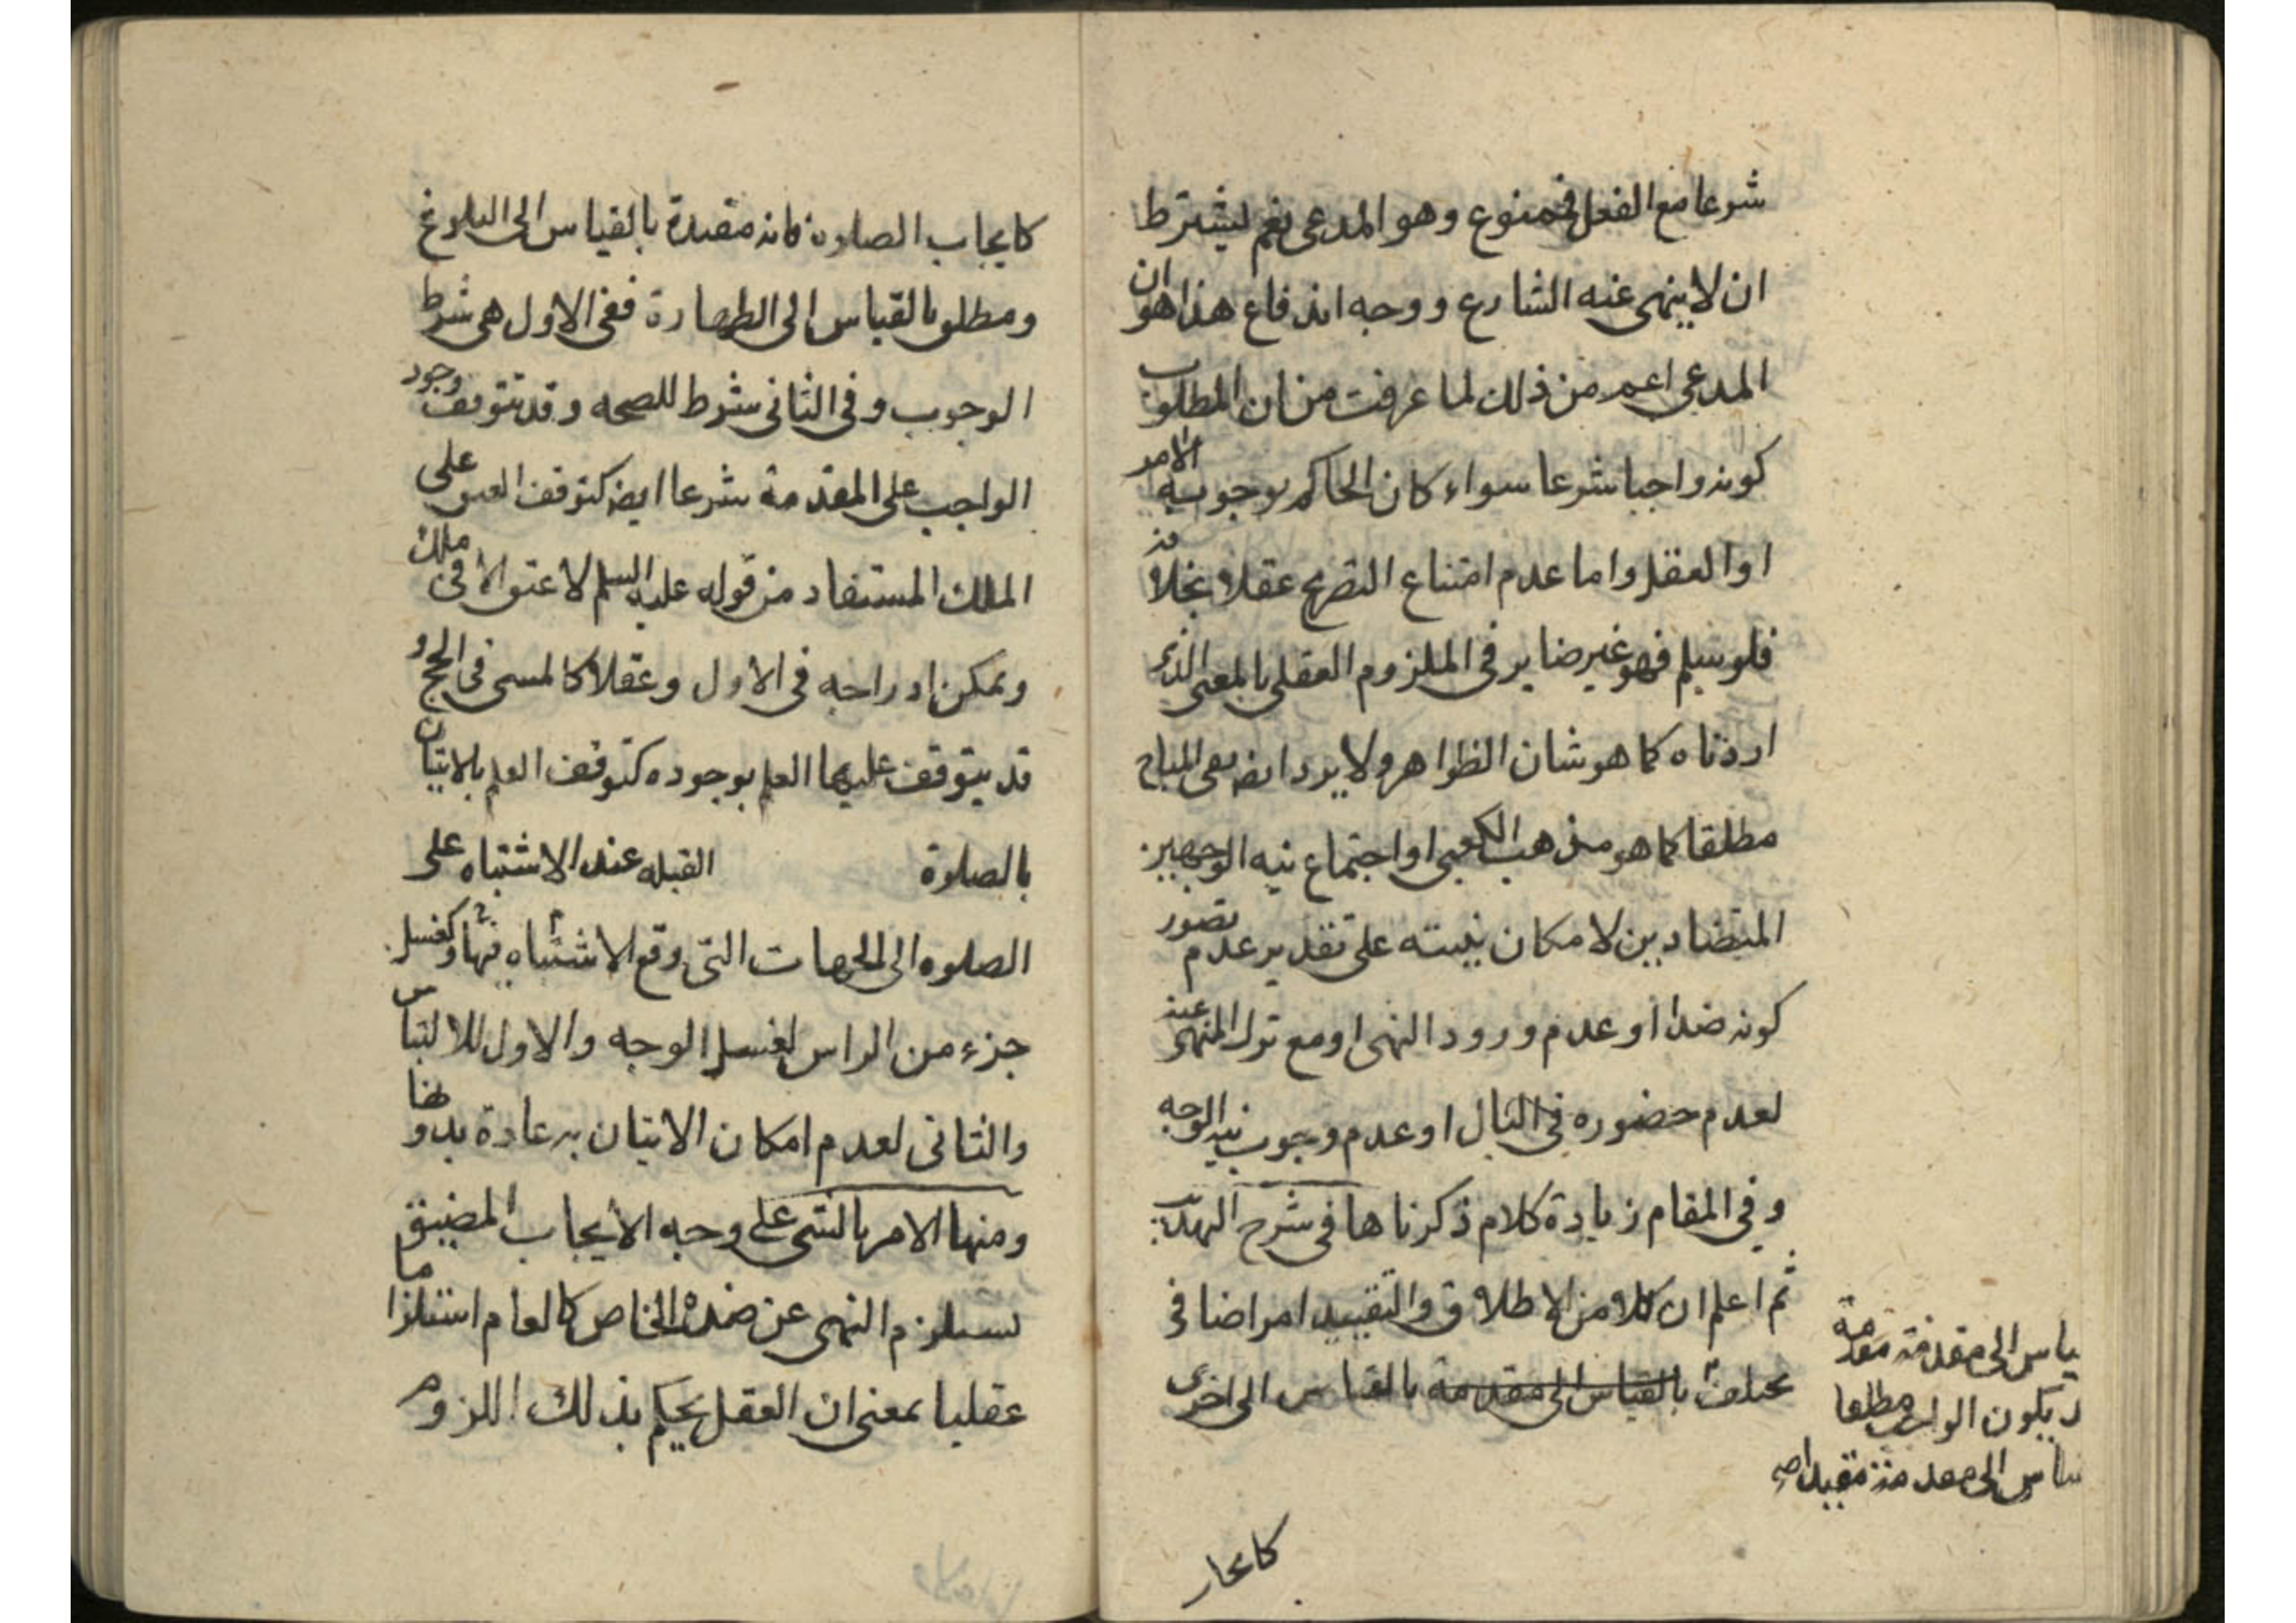 شرعا مع الفعل فممنوع وهو المدعى نعم يشترط
ان لا ينهى عنه الشارع ووجه اندفاع هذا هو ان
المدعى اعم من ذلك لما عرفت من ان المطلوب
كونه واجبا شرعا سواء كان الحاكم بوجوبه الامر
او العقل واما عدم امتناع التصريح عقلا بخلافه
فلو سلم فهو غير ضاير فى الملزوم العقلى بالمعنى الذى
اردناه كما هو شان الظواهر ولا يرد ايضا نفى المباح
مطلقا كما هو مذهب الكعبى او اجتماع نيه الوجهين
المتضادين لا مكان نيته على تقدير عدم تصور
كونه ضدا او عدم ورود النهى او مع ترك المنهى عنه
لعدم حضوره فى البال او عدم وجوب نيه الوجه
وفى المقام زيادة كلام ذكرناها فى شرح
ثم اعلم ان كلا من الاطلاق والتقييد امر اضافى
يختلف بالقياس الى مقدمة بالقياس الى اخرى
ياس الى مقدمة مقدمة
يكون الواجب مطلقا
الى مقدمة مقيدا
كايجاب الصلوة فانه مقيدة بالقياس الى البلوغ
ومطلق بالقياس الى الطهارة ففى الاول هى شرط
الوجوب وفى الثانى شرط للصحه وقد يتوقف وجود
الواجب على المقدمة شرعا ايضا كتوقف العتق على
الملك المستفاد من قوله عليه السلم لا عتق الا فى ملك
ويمكن ادراجه فى الاول وعقلا كالمسى فى الحج و
قد يتوقف عليها العلم بوجوده كتوقف العلم بالاتيان
بالصلوة القبله عند الاشتباه على
الصلوه الى الجهات التى وقع الاشتباه فيها وكغسل
جزء من الراس لغسل الوجه والاول للالتباس
والثانى لعدم امكان الاتيان به عادة بدونها
ومنها الامر بالشى على وجه الايجاب المضيق
يستلزم النهى عن ضده الخاص كالعام استلزاما
عقليا بمعنى ان العقل يحكم بذلك اللزوم